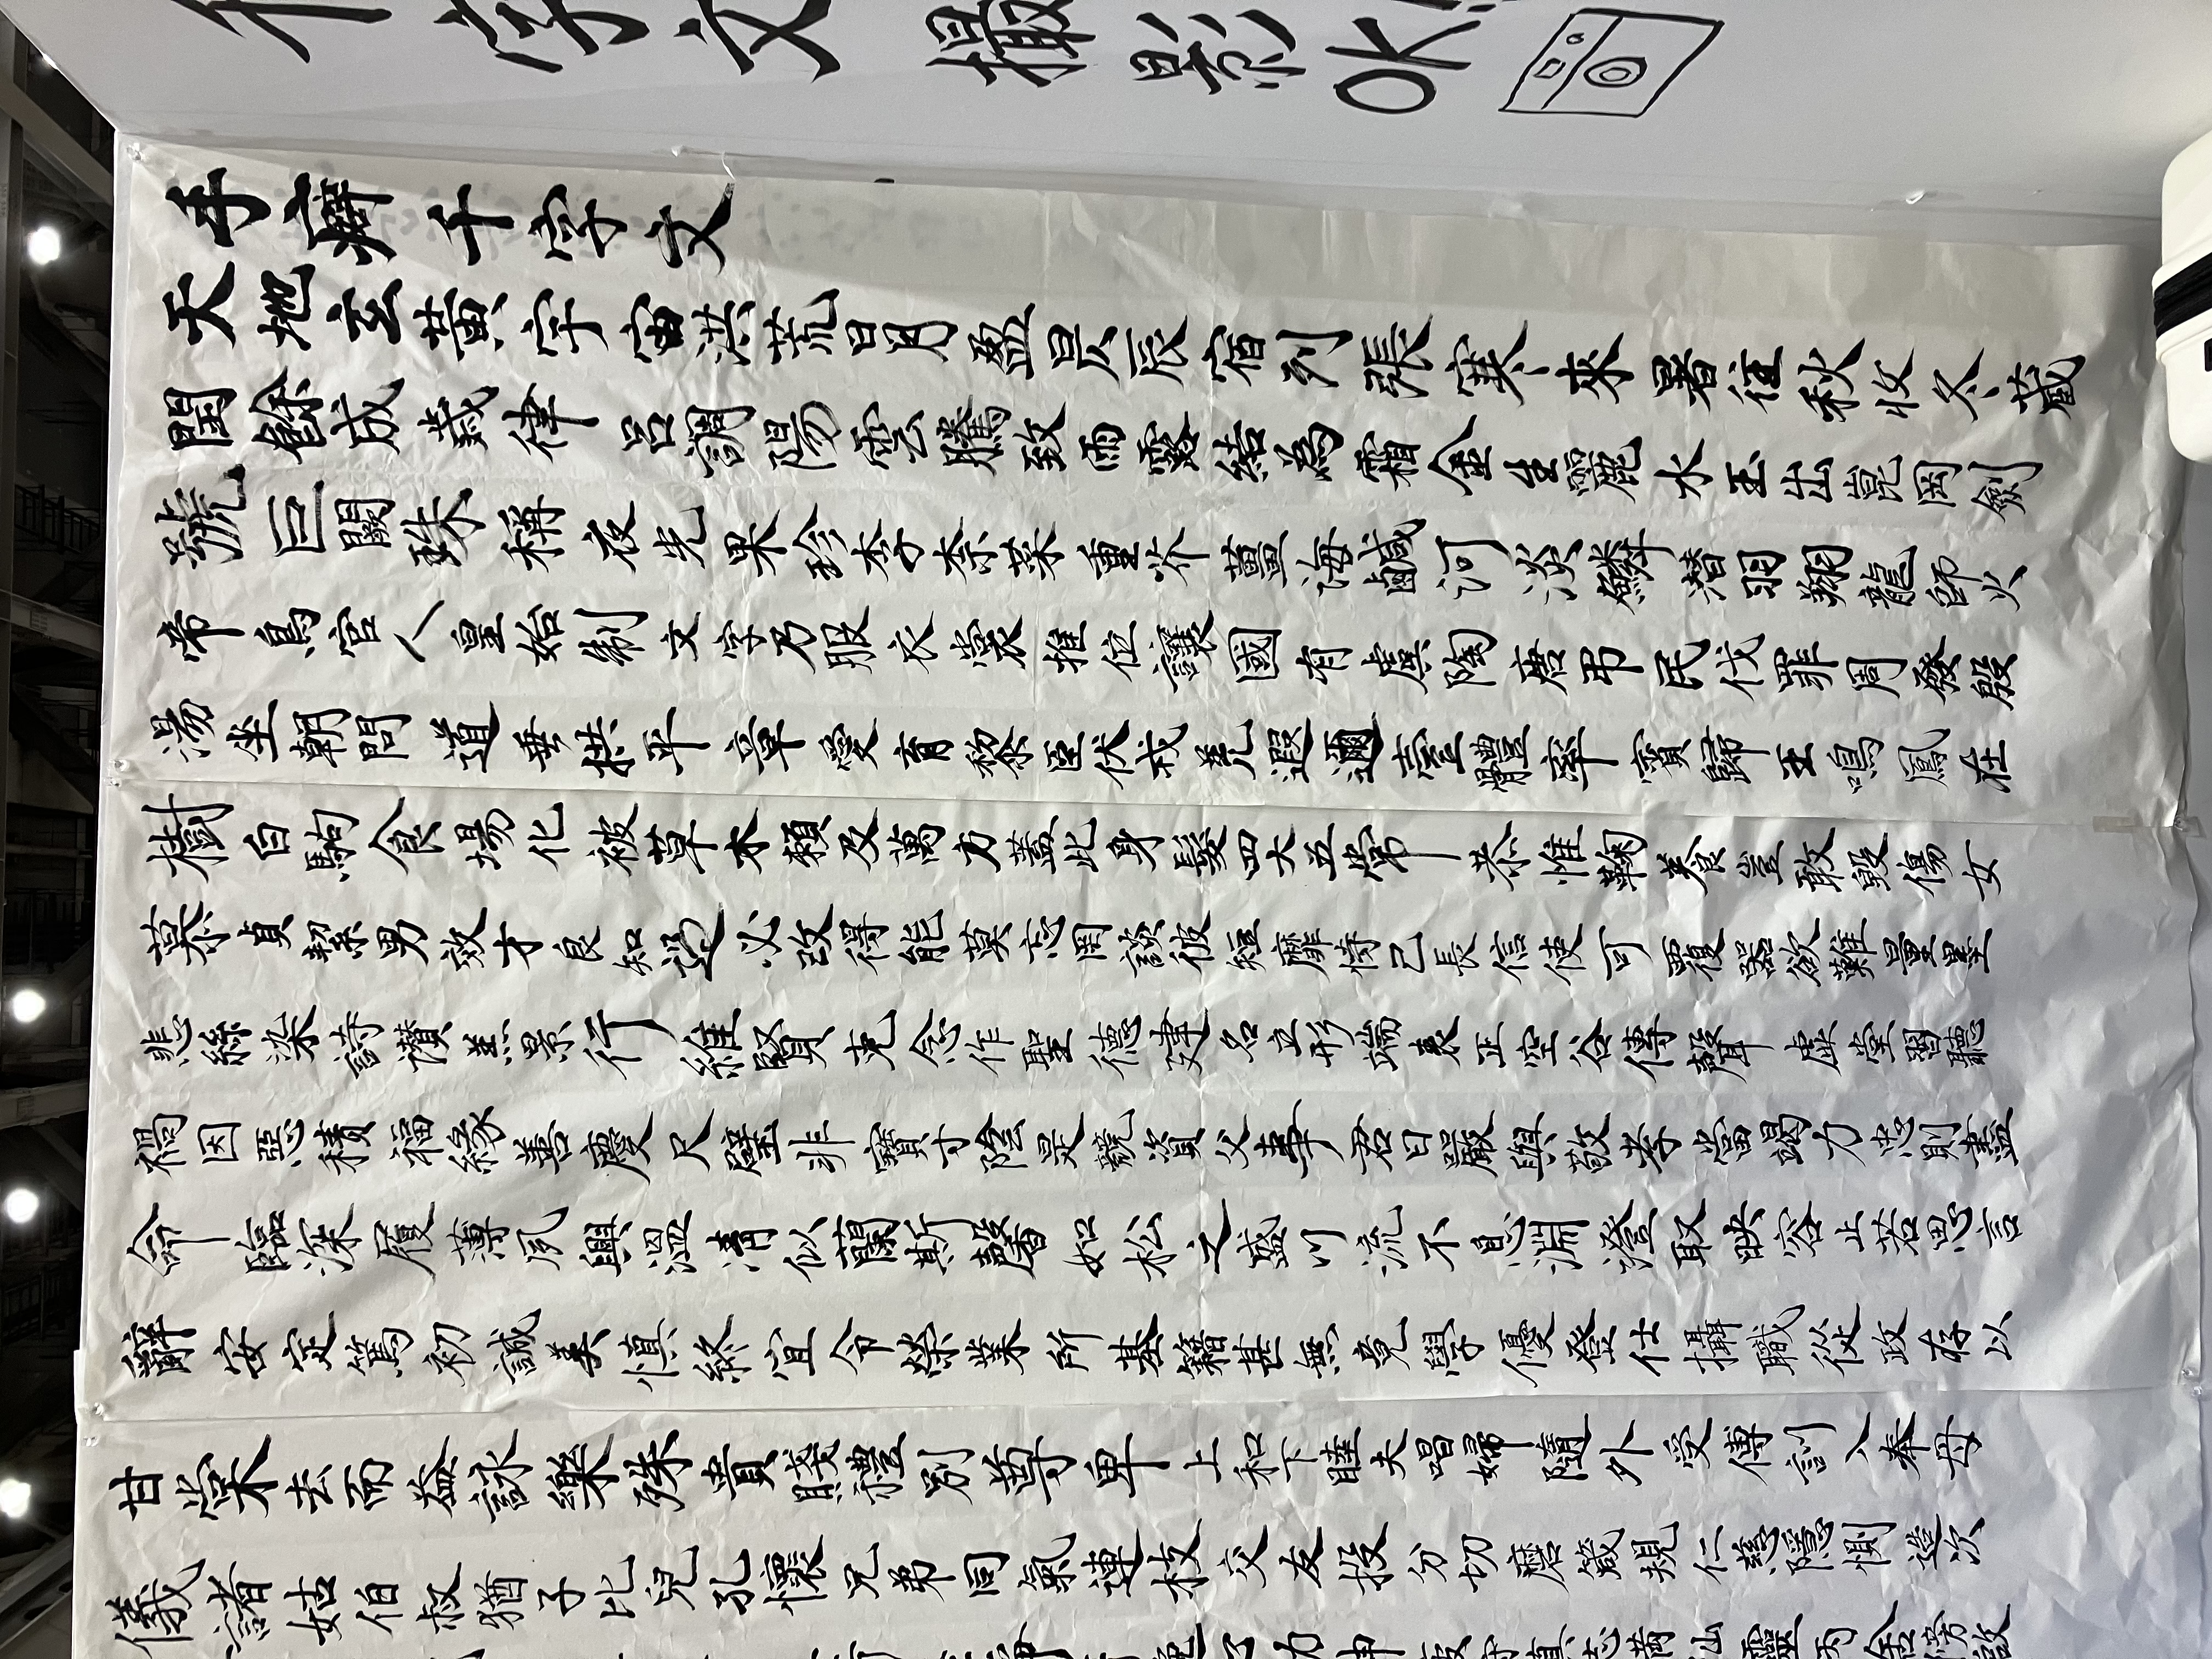 千字文 撮影OK!
手癖千字文
天地玄黄宇宙洪荒日月盈昃辰宿列張寒来暑往秋收冬蔵
閏餘成歳律呂調陽雲騰致雨露結為霜金生麗水玉出崑岡劍
號巨闕珠稱夜光果珍李柰菜重芥薑海鹹河淡鱗潜羽翔龍師火
帝鳥官人皇始制文字乃服衣裳推位讓國有虞陶唐弔民伐罪周發殷
湯坐朝問道垂拱平章愛育黎臣伏戎羌遐邇壹體率賓歸王鳴鳳在
樹白駒食場化被草木賴及萬方蓋此身髮四大五常恭惟鞠養豈敢毀傷女
慕貞絜男效才良知過必改得能莫忘罔談彼短靡恃己長信使可覆器欲難量墨
悲絲染詩讃羔景行維賢克念作聖德建名立形端表正空谷傳聲虚堂習聽
禍因惡積福緣善慶尺璧非寶寸陰是競資父事君曰嚴與敬孝當竭力忠則盡
命臨深履薄夙興温凊似蘭斯馨如松之盛川流不息淵澄取映容止若思言
辭安定篤初誠美慎終宜令榮業所基籍甚無竟學優登仕攝職從政存以
甘棠去而益詠樂殊貴賤禮別尊卑上和下睦夫唱婦随外受傅訓入奉母
儀諸姑伯叔猶子比兒孔懷兄弟同氣連枝交友投分切磨箴規仁慈隱惻造次